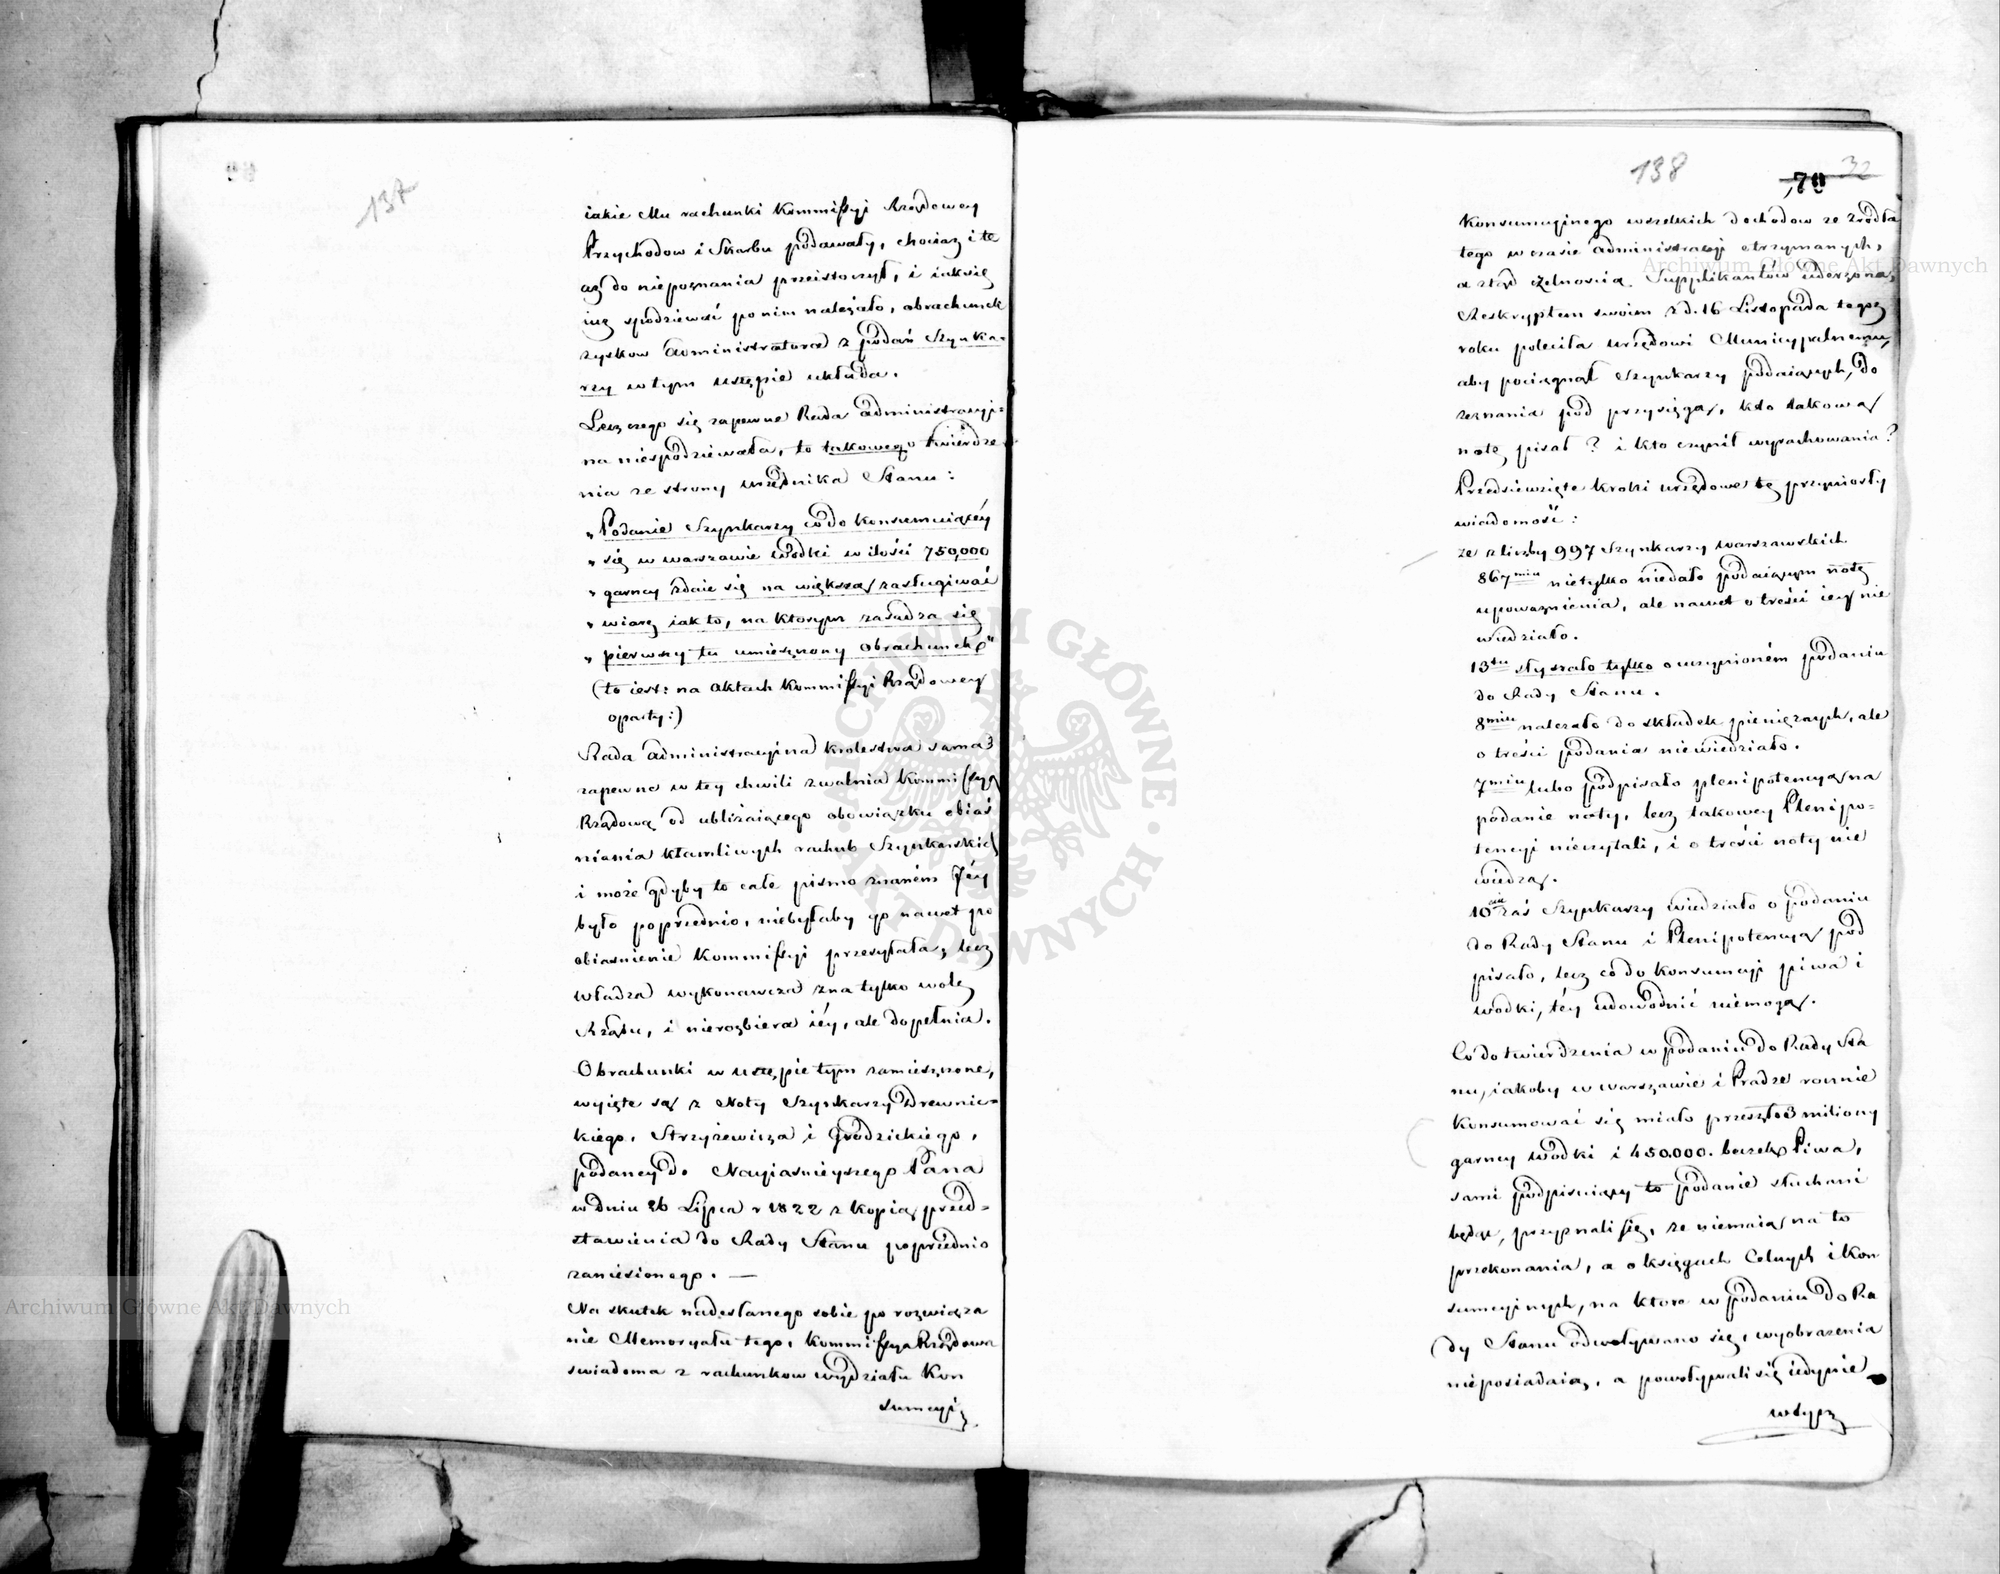 137
iakie Mu rachunki Kommissyi Rządowey
Przychodow i Skarbu podawały, chociaż i te
aż do niepoznania przeistoczył, i iak się
iuż spodziewać po nim należało, obrachunek
zyskow Administratora z podań Szynka-
rzy w tym ustępie układa.
Lecz czego się zapewne Rada Administracyi-
na niespodziewała, to takowego twierdze-
nia ze strony urzędnika Stanu:
„Podanie Szynkarzy co do konsumuiącéy
„się w Warszawie wódki w ilości 750,000
„garncy zdaie się na większą zasługiwać
„wiarę iak to, na którym zasadza się
„pierwszy tu umieszczony obrachunek"
(to iest: na Aktach Kommissyi Rządowey
oparty:)
Rada Administracyina Krolestwa sama
zapewne w tey chwili zwalnia Kommissyą
Rządową od ubliżaiącego obowiązku obiaś
niania kłamliwych rachub Szynkarskich
i może gdyby to całe pismo znaném Jéy
było poprzednio, niebyłaby go nawet po
obiasnienie Kommissyi przesyłała, lecz
władza wykonawcza zna tylko wolę
Rządu, i nierozbiera iéy, ale dopełnia.
Obrachunki w ustępie tym zamieszczone,
wyięte są z Noty Szynkarzy Drewnic-
kiego, Strzyżewicza i Grodzickiego,
podaney do Nayiasnieyszego Pana
w dniu 26 Lipca r 1822 z kopią przed-
stawienia do Rady Stanu poprzednio
zaniesionego. —
Na skutek nadesłanego sobie po rozwiąza
nie Memoryału tego, Kommissya Rządowa
swiadoma z rachunkow wydziału Kon
sumcyi
138
70
32
Konsumcyinego wszelkich dochodow ze zrodła
tego w czasie Administracyi otrzymanych,
a ztąd czelnością Supplikantów uderzona,
Reskryptem swoim z d. 16 Listopada tegoż
roku poleciła urzędowi Municypalnemu,
aby pociągnął Szynkarzy podaiących, do
zeznania pod przysięgą, kto takową
notę pisał? i kto czynił wyrachowania?
Przedsiewzięte kroki urzędowe tę przyniosły
wiadomość:
ze z liczby 997 Szynkarzy warszawskich
867miu nietylko niedało podaiącym notę
upoważnienia, ale nawet o treści iey nie
wiedziało.
13tu słyszało tylko o uczynioném podaniu
do Rady Stanu.
8miu należało do składek pieniężnych, ale
o treści podania niewiedziało.
7miu lubo podpisało plenipotencyą na
podanie noty, lecz takowey Plenipo-
tencyi nieczytali, i o treści noty nie
wiedzą.
10ciu zaś Szynkarzy wiedziało o podaniu
do Rady Stanu i Plenipotencyą pod
pisało, lecz co do konsumcyi piwa i
wodki, téy udowodnić niemogą.
Co do twierdzenia w podaniu do Rady Sta
nu, iakoby w Warszawie i Pradze rocznie
konsumować się miało przeszło 3 miliony
garncy wódki i 450.000. beczek Piwa,
sami podpisuiący to podanie słuchani
będąc, przyznali się, że niemaią na to
przekonania, a o księgach Celnych i Kon
sumcyinych, na ktore w podaniu do Ra
dy Stanu odwoływano się, wyobrażenia
nieposiadaią, a powoływali się iedynie
w Archiwum Główne Akt Dawnych
Archiwum Główne Akt Dawnych
ARCHIWUM GŁÓWNE AKT DAWNYCH